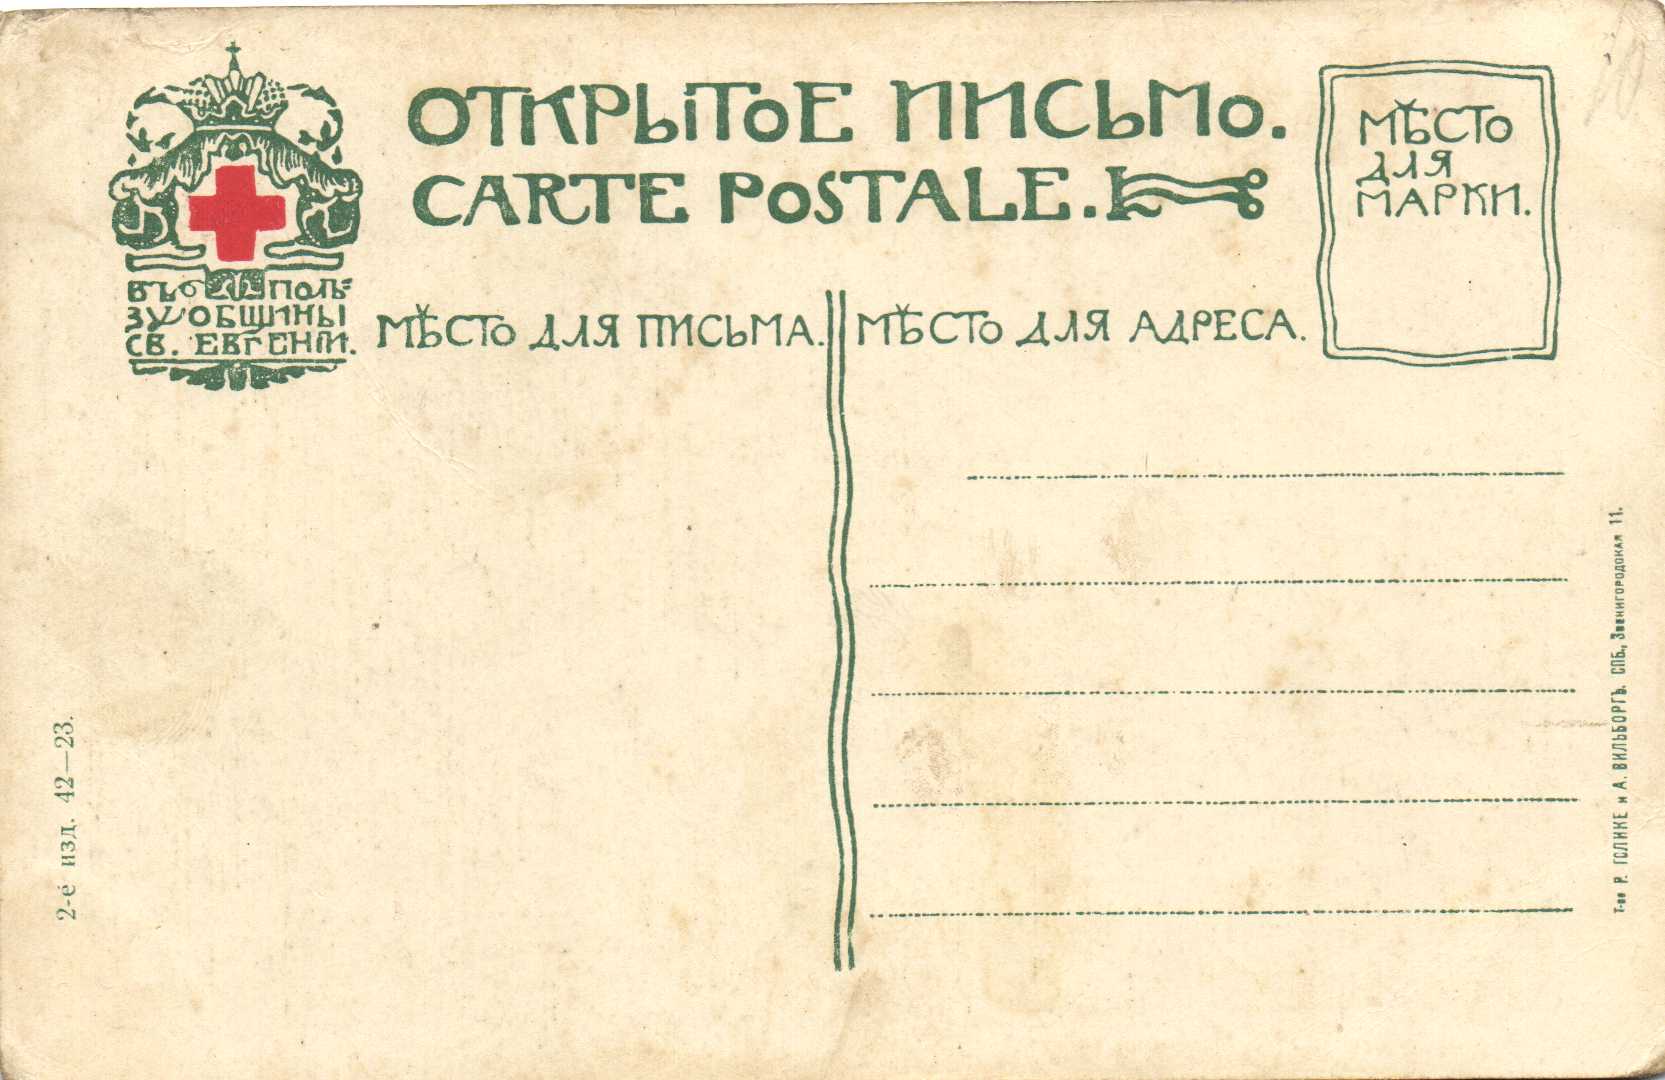 ОТКРЫТОЕ ПИСЬМО.
CARTE POSTALE.
МѢСТО
ДЛЯ
МАРКИ.
ВЪ ПОЛЬ-
ЗУ ОБЩИНЫ
СВ. ЕВГЕНІИ.
МѢСТО ДЛЯ ПИСЬМА.
МѢСТО ДЛЯ АДРЕСА.
2-е́ изд. 42—23.
Т-во Р. ГОЛИКЕ и А. ВИЛЬБОРГЪ. СПБ., Звенигородская 11.